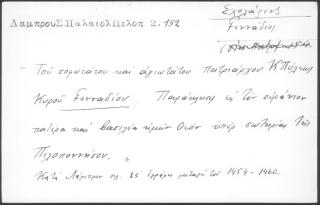 Λαμπρου Σ. Παλαιολ Πελοπ 2. 152
Σχολάριος
Γεννάδιος
" Τοῦ σοφωτάτου καὶ ἁγιωτάτου πατριάρχου Κ/Πόλεως
Κυροῦ Γενναδίου. Παράκλησις εἰς τὸν οὐράνιον
πατέρα καὶ βασιλέα ἡμῶν Θεὸν ὑπὲρ σωτηρίας τῆς
Πελοποννήσου. "
Κατὰ Λάμπρον σελ. ιε' ἐγράφη μεταξὺ τοῦ 1454 - 1460.